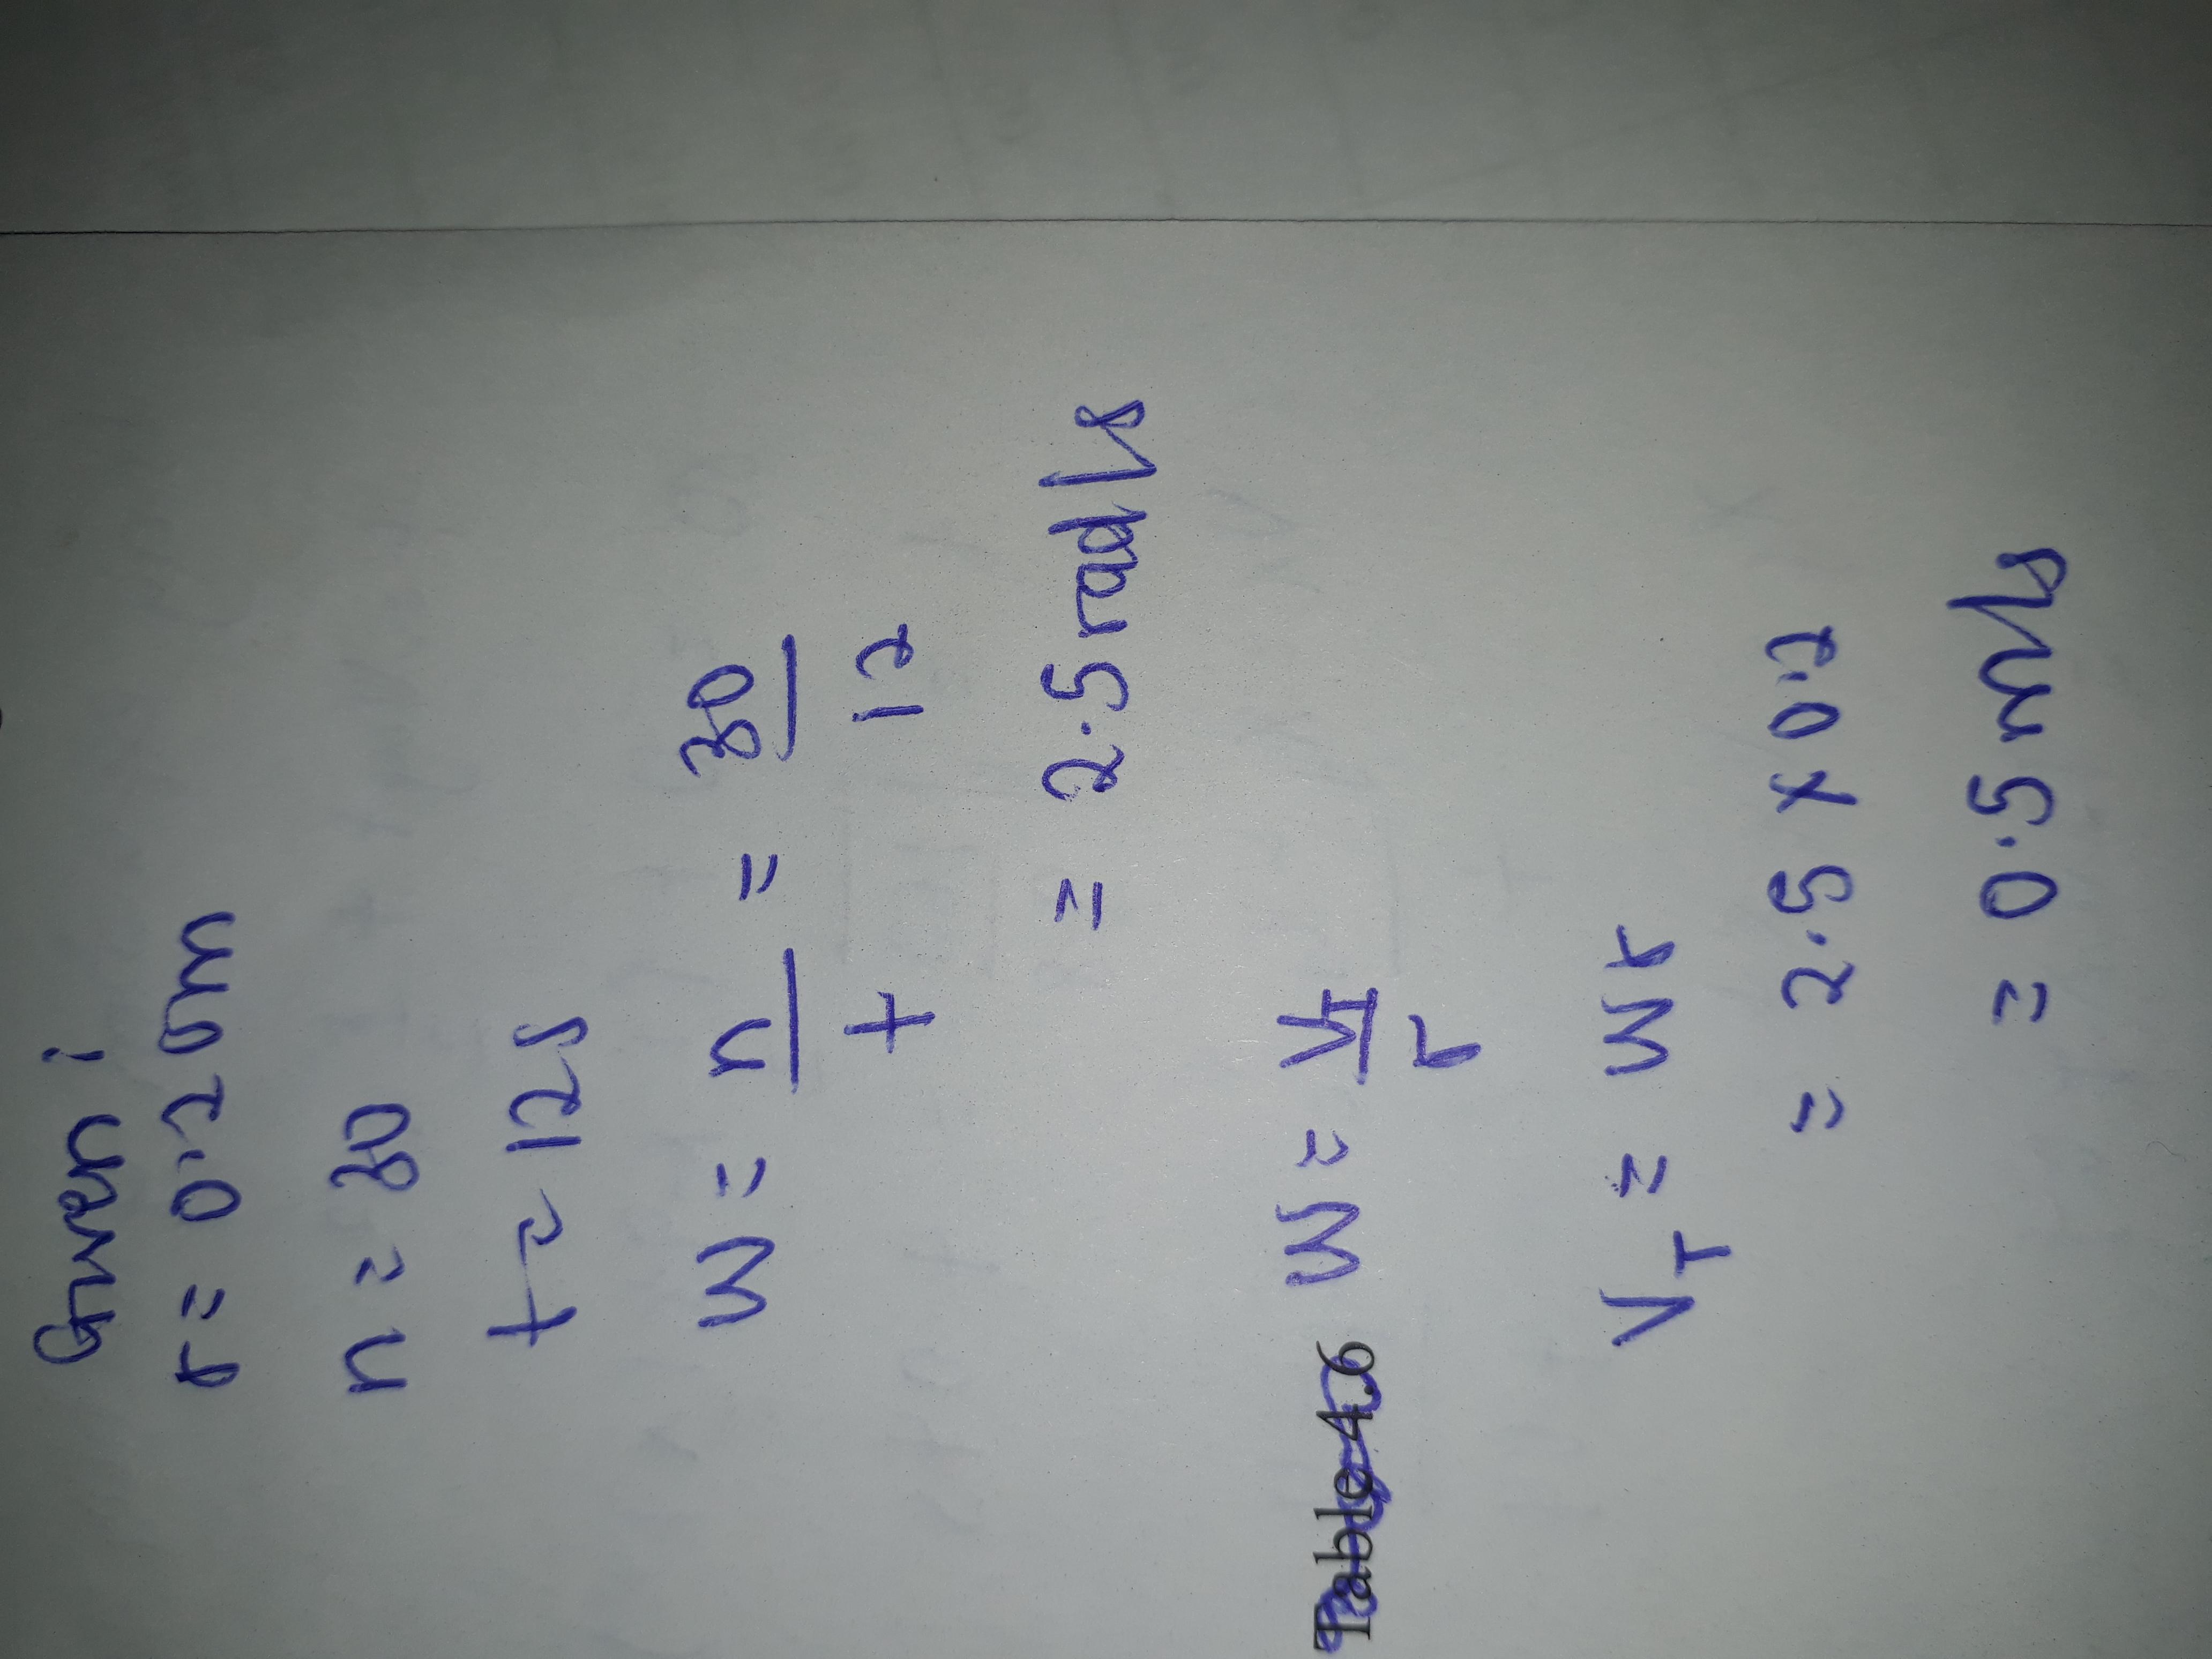 Given :
r = 0.2 cm
n = 30
t = 12s
W = n/t = 30/12
= 2.5 rad/s
Table 4.6 W = VT/r
VT = Wr
= 2.5 x 0.2
= 0.5 m/s